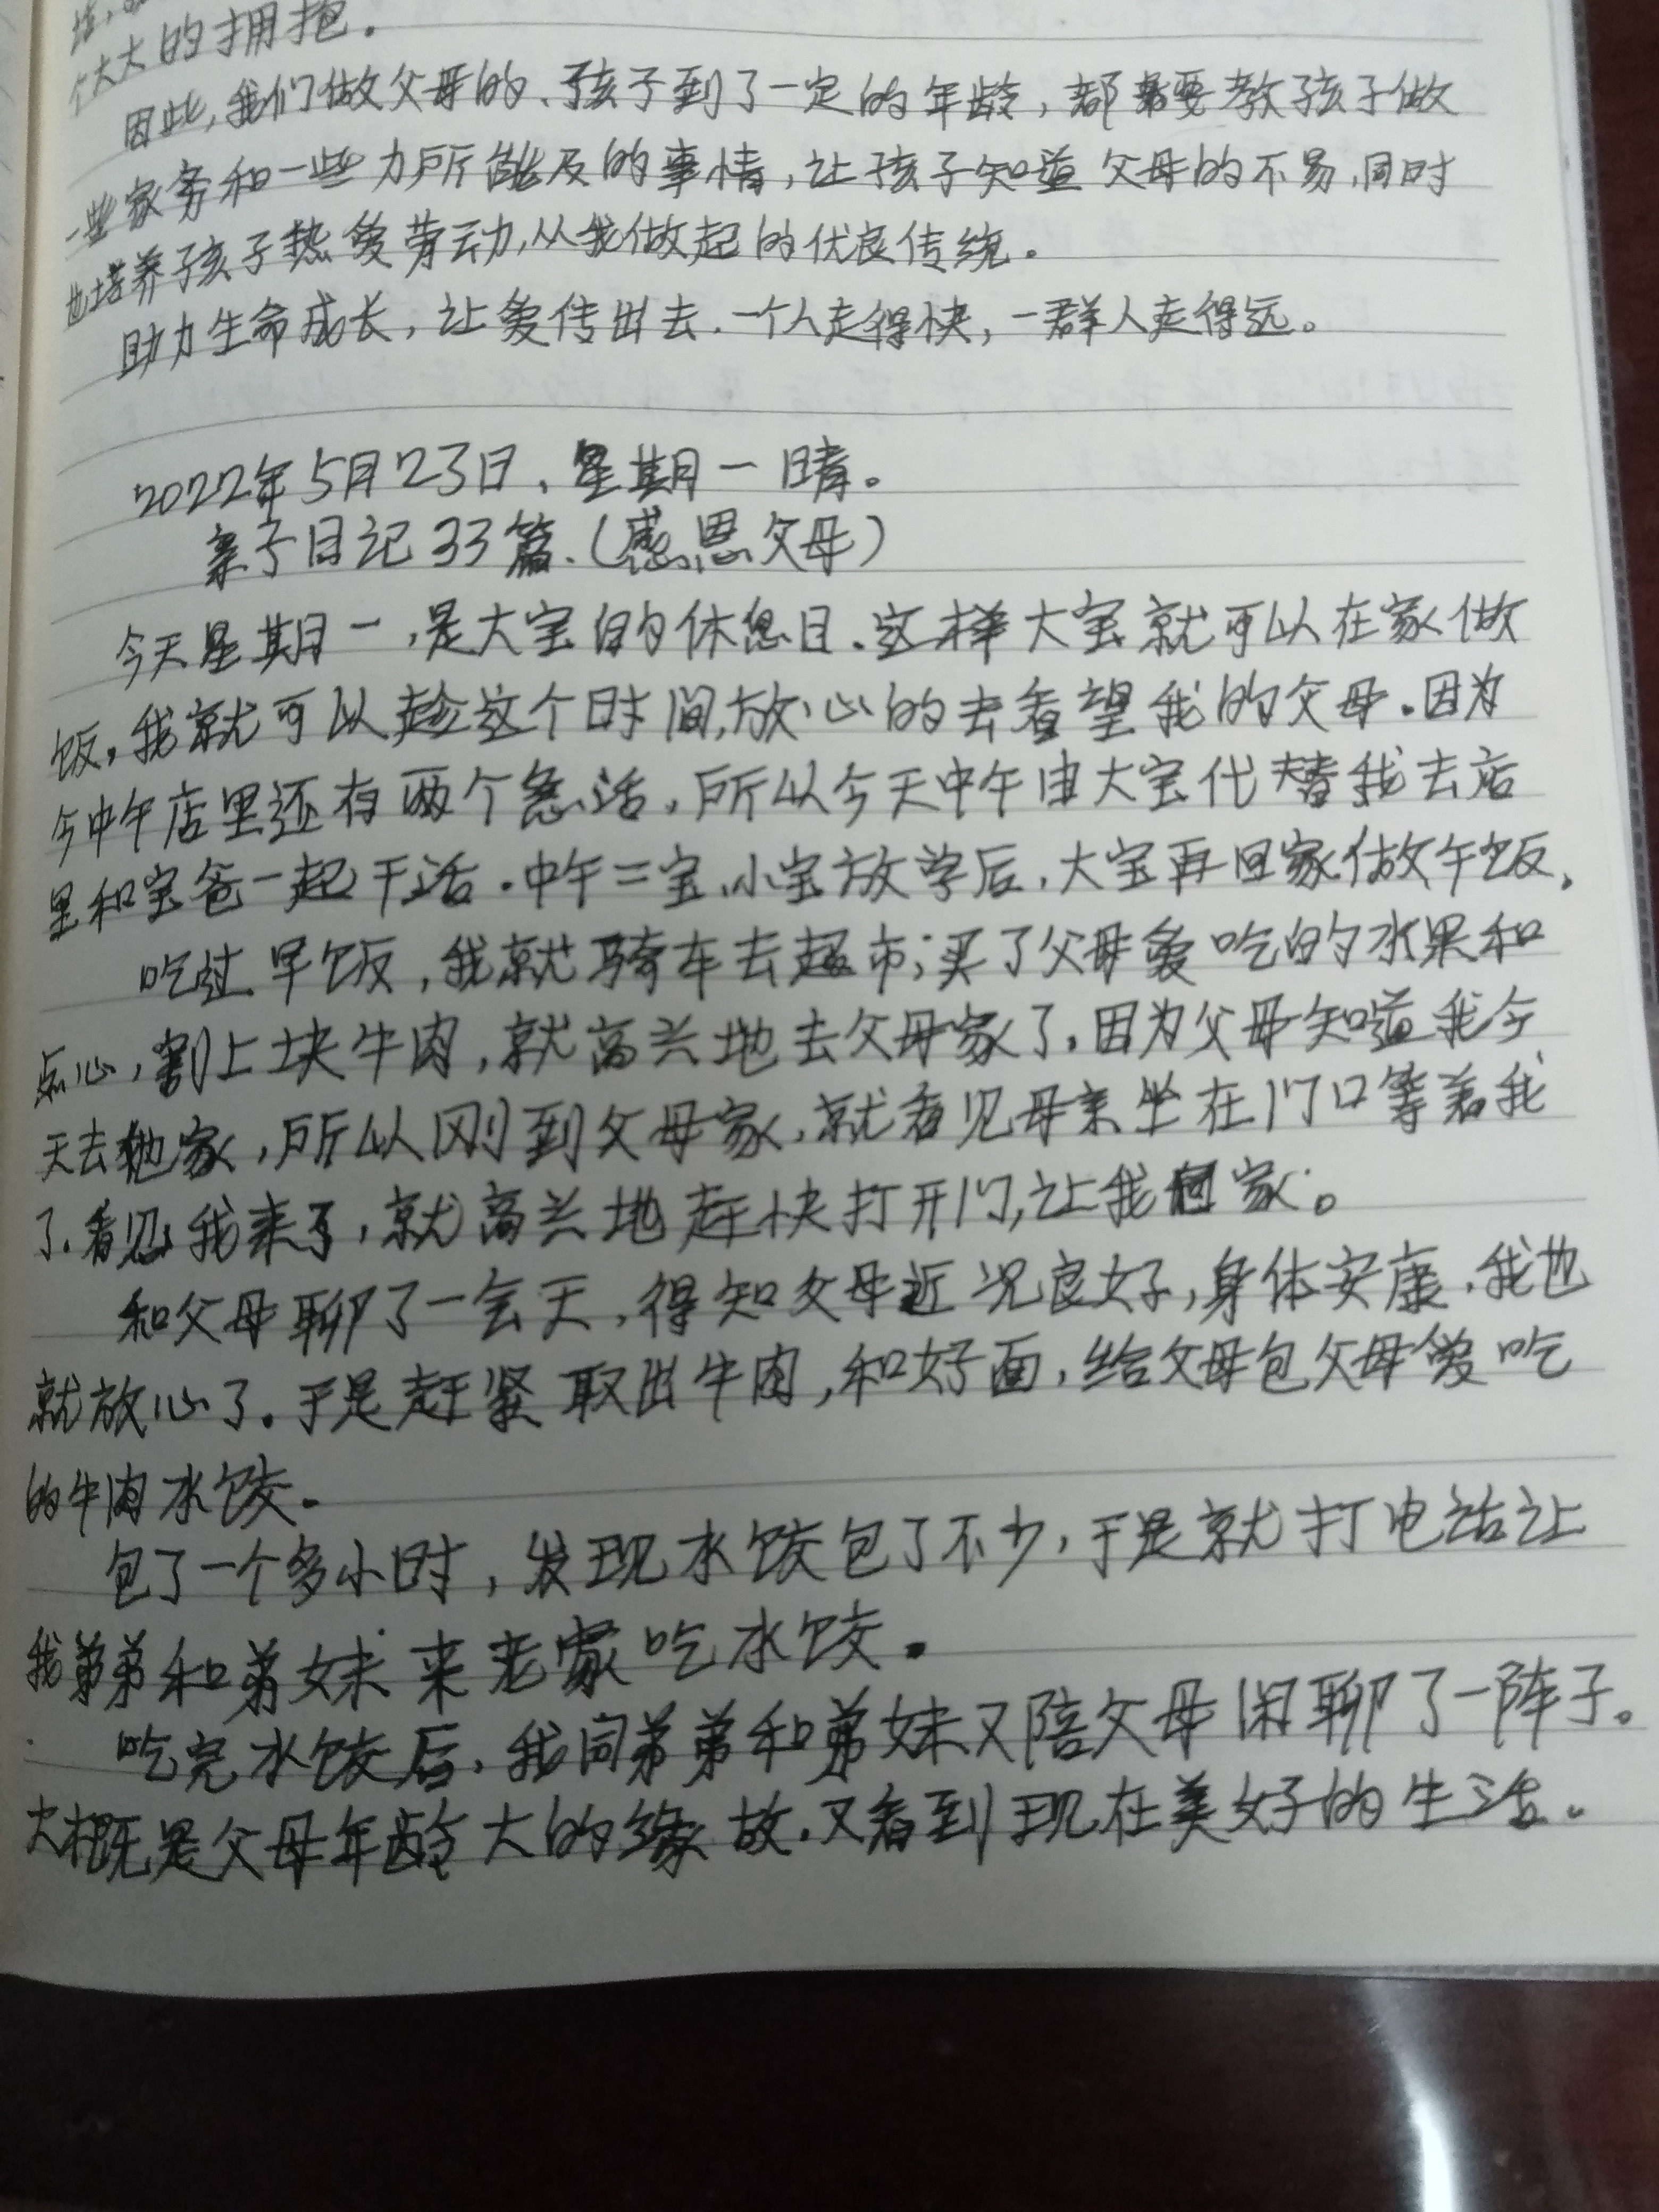 个大大的拥抱。
因此,我们做父母的、孩子到了一定的年龄,都需要教孩子做
一些家务和一些力所能及的事情,让孩子知道父母的不易,同时
也培养孩子热爱劳动,从我做起的优良传统。
助力生命成长,让爱传出去.一个人走得快,一群人走得远。
2022年5月23日、星期一 晴。
亲子日记33篇.(感恩父母)
今天星期一,是大宝的休息日.这样大宝就可以在家做
饭,我就可以趁这个时间,放心的去看望我的父母.因为
今中午店里还有两个急活,所以今天中午由大宝代替我去店
里和宝爸一起干活.中午二宝、小宝放学后,大宝再回家做午饭,
吃过早饭,我就骑车去超市;买了父母爱吃的水果和
点心,割上块牛肉,就高兴地去父母家了.因为父母知道我今
天去她家,所以刚到父母家,就看见母亲坐在门口等着我
了.看见我来了,就高兴地赶快打开门,让我回家。
和父母聊了一会天,得知父母近况良好,身体安康.我也
就放心了.于是赶紧取出牛肉,和好面,给父母包父母爱吃
的牛肉水饺.
包了一个多小时,发现水饺包了不少,于是就打电话让
我弟弟和弟妹来老家吃水饺.
吃完水饺后,我同弟弟和弟妹又陪父母闲聊了一阵子。
大概是父母年龄大的缘故.又看到现在美好的生活。